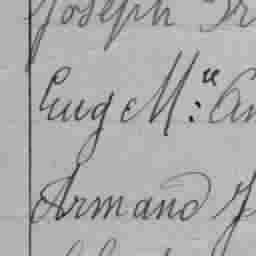 Joseph Fr
Eug M:ie An
Armand J